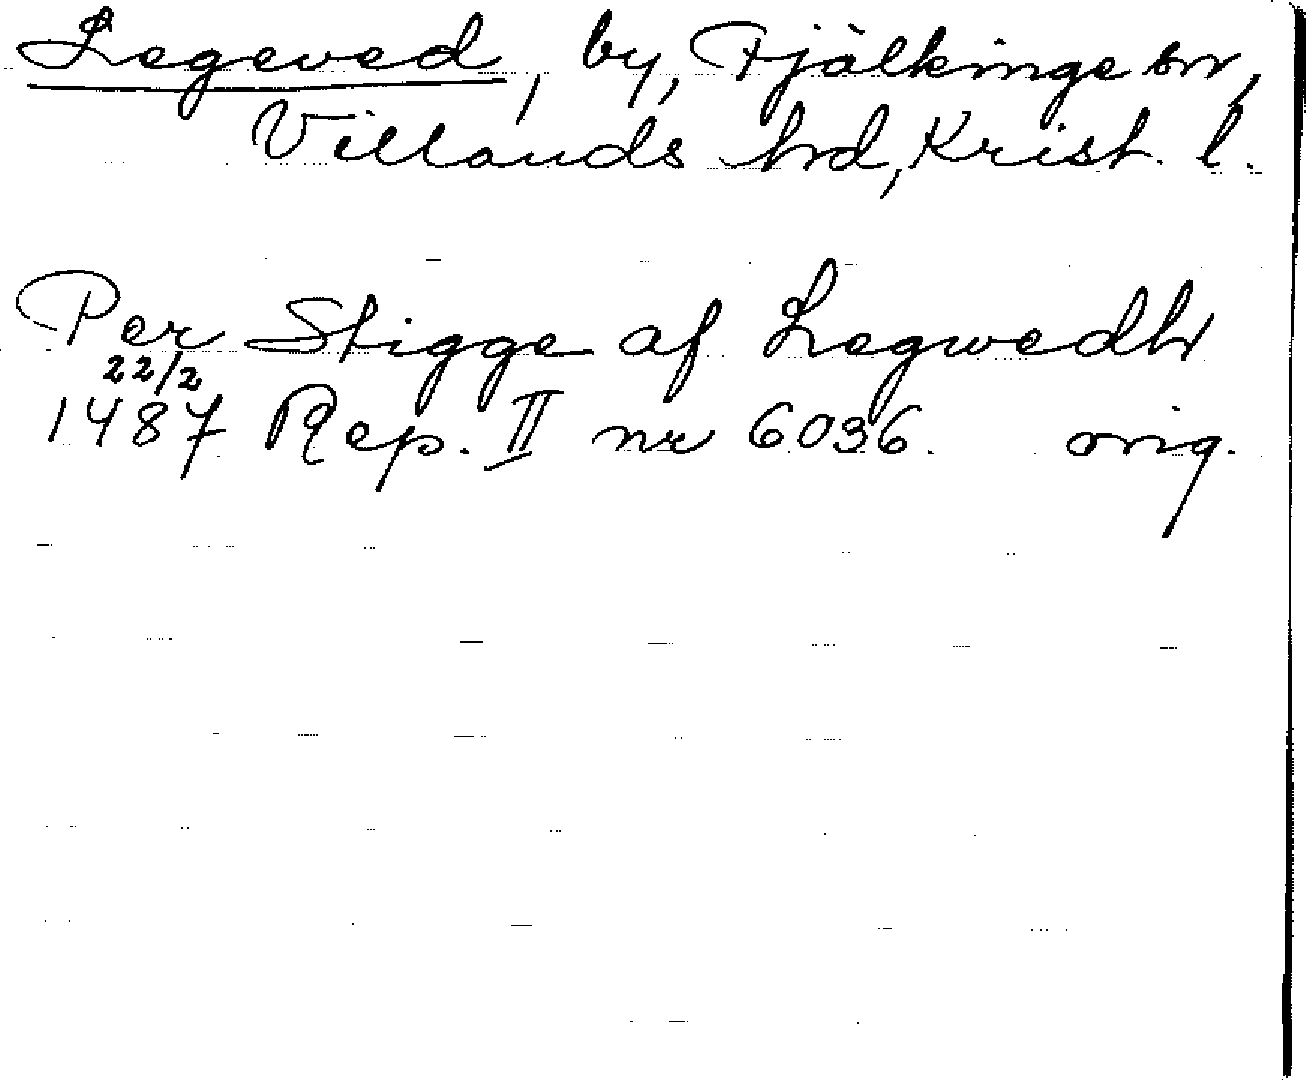 Legeved, by, Fjälkinge sn,
Villands hrd, Krist. l.
Per Stigge af Legwedh
22/2
1487 Rep. II nr 6036. orig.